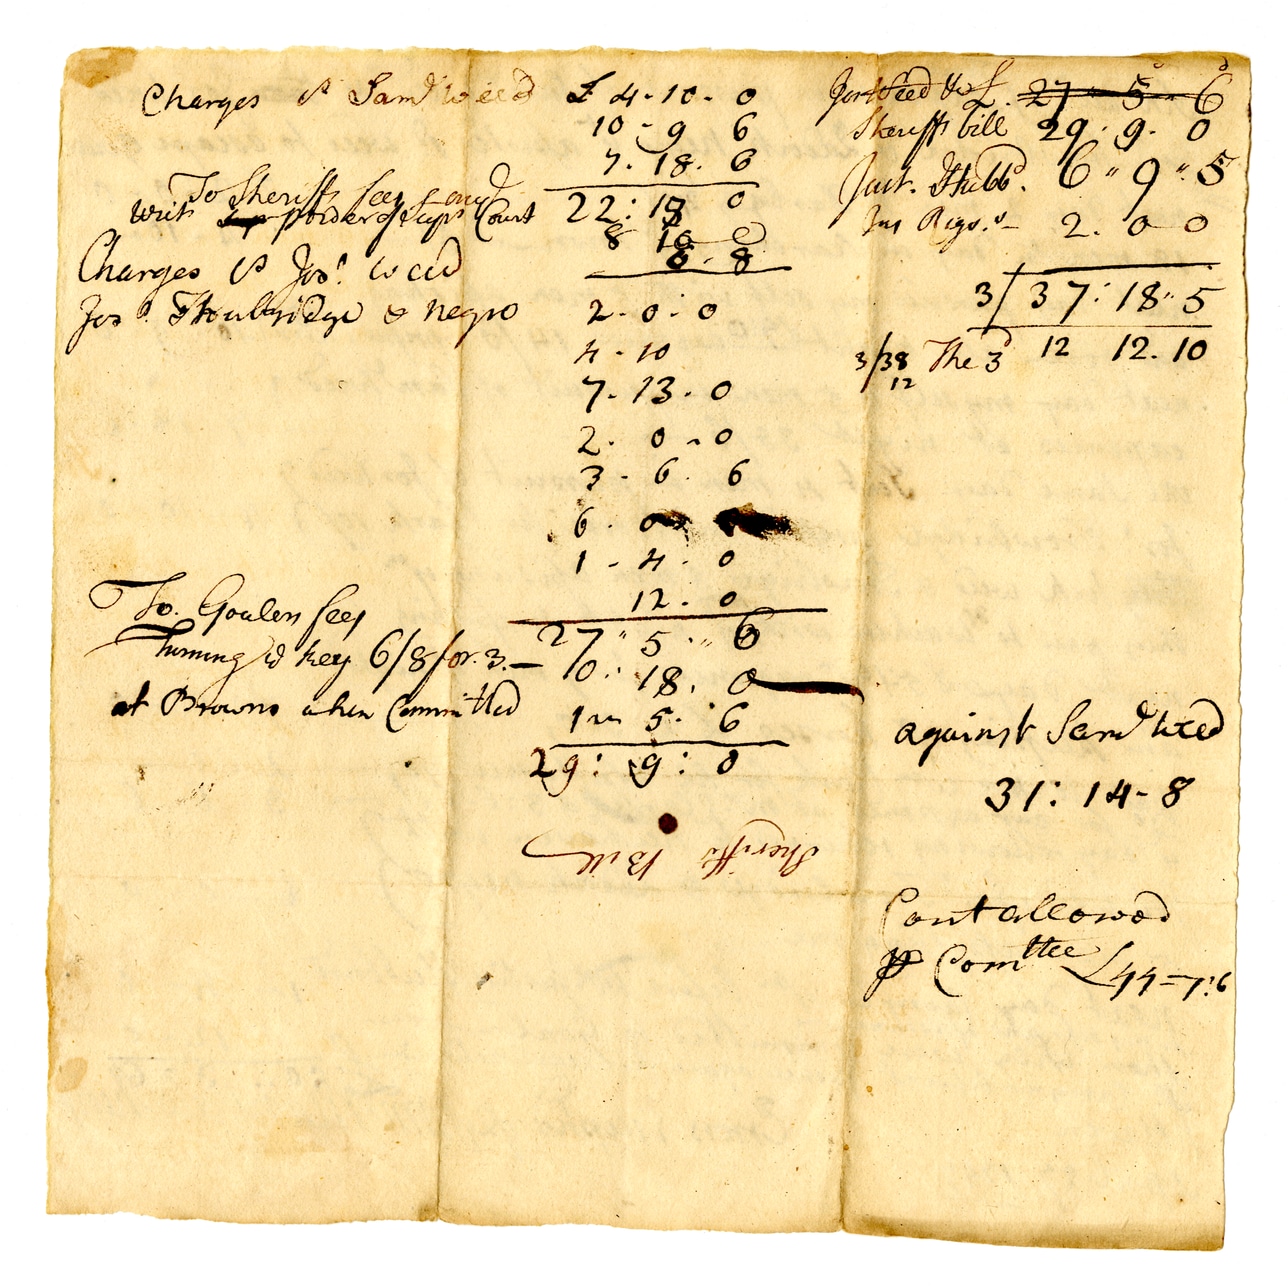 Charges vs Samll Weed £ 4-10-0
10-9 6
7.18.6
To Sheriffs fees and 22:18 0
Writ pr order of Supr Court 8 10 0
6.8
Charges vs Jos. Weed
Jos. Thoubridge & negro 2.0.0
4-10
7.13.0
2.0-0
3-6.6
6.0
1-4.0
12.0
27 " 5 " 6
To Goalers fees
Turning ye key 6/8 for 3.— 10:18.0
at Browns when Committed 1 " 5.6
29:9:0
Sheriffs Bill
Jos Weed &c £. 27 " 5 " 6
Sheriffs bill 29.9.0
Just. Hubbd. 6 " 9 " 5
2.0 0
3/37:18"5
3/38 The 3d 12 12.10
12
against Samll Weed
31:14-8
Cont allowed
pr Comttee £44=7:6